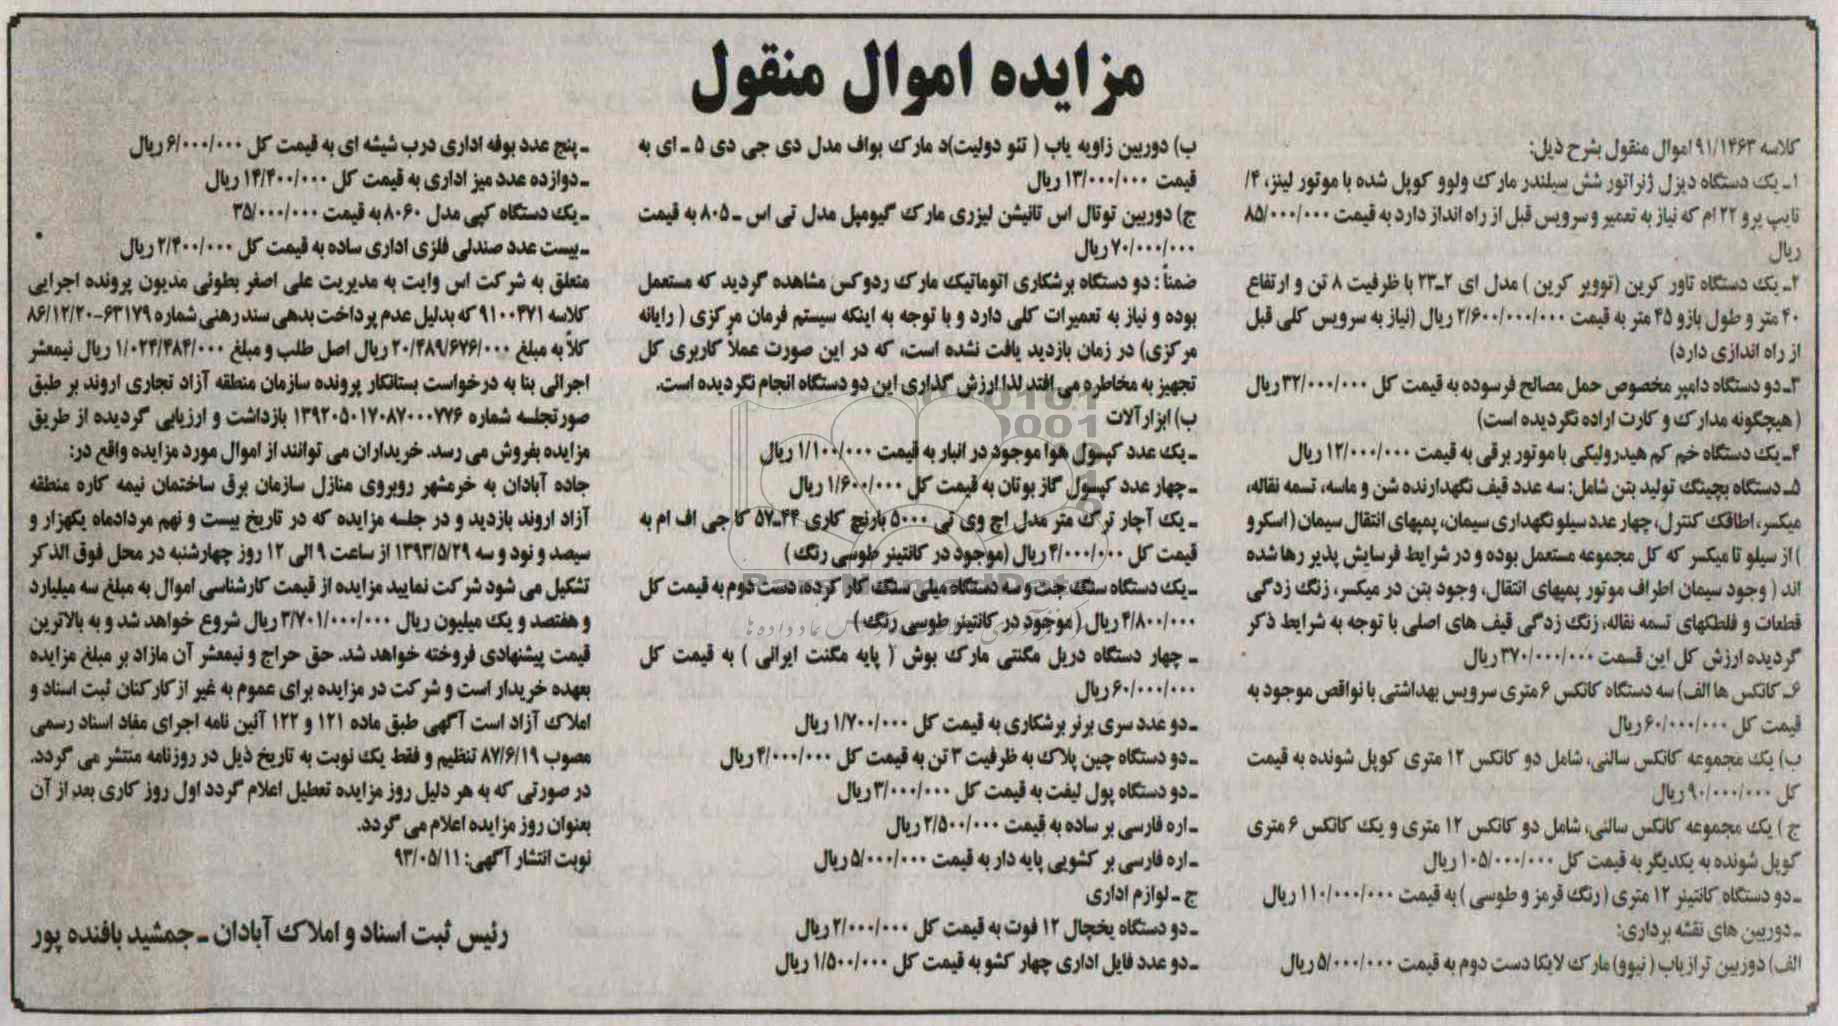 مزایده اموال منقول
کلاسه ۹۱/۱۴۶۳ اموال منقول بشرح ذیل:
۱ـ یک دستگاه دیزل ژنراتور شش سیلندر مارک ولوو کوپل شده با موتور لینز، ۴/
تایپ پرو ۲۲ ام که نیاز به تعمیر و سرویس قبل از راه انداز دارد به قیمت ۸۵/۰۰۰/۰۰۰
ریال
۲ـ یک دستگاه تاور کرین (توویر کرین ) مدل ای ۲ـ۲۳ با ظرفیت ۸ تن و ارتفاع
۴۰ متر و طول بازو ۴۵ متر به قیمت ۲/۶۰۰/۰۰۰/۰۰۰ ریال (نیاز به سرویس کلی قبل
از راه اندازی دارد)
۳ـ دو دستگاه دامپر مخصوص حمل مصالح فرسوده به قیمت کل ۳۲/۰۰۰/۰۰۰ ریال
( هیچگونه مدارک و کارت اراده نگردیده است)
۴ـ یک دستگاه خم کم هیدرولیکی با موتور برقی به قیمت ۱۲/۰۰۰/۰۰۰ ریال
۵ـ دستگاه بچینگ تولید بتن شامل: سه عدد قیف نگهدارنده شن و ماسه، تسمه نقاله،
میکسر، اطاقک کنترل، چهار عدد سیلو نگهداری سیمان، پمپهای انتقال سیمان ( اسکرو
) از سیلو تا میکسر که کل مجموعه مستعمل بوده و در شرایط فرسایش پذیر رها شده
اند ( وجود سیمان اطراف موتور پمپهای انتقال، وجود بتن در میکسر، زنگ زدگی
قطعات و فلطکهای تسمه نقاله، زنگ زدگی قیف های اصلی با توجه به شرایط ذکر
گردیده ارزش کل این قسمت ۳۷۰/۰۰۰/۰۰۰ ریال
۶ـ کانکس ها الف) سه دستگاه کانکس ۶ متری سرویس بهداشتی با نواقص موجود به
قیمت کل ۶۰/۰۰۰/۰۰۰ ریال
ب) یک مجموعه کانکس سالنی، شامل دو کانکس ۱۲ متری کوپل شونده به قیمت
کل ۹۰/۰۰۰/۰۰۰ ریال
ج ) یک مجموعه کانکس سالنی، شامل دو کانکس ۱۲ متری و یک کانکس ۶ متری
کوپل شونده به یکدیگر به قیمت کل ۱۰۵/۰۰۰/۰۰۰ ریال
ـ دو دستگاه کانتینر ۱۲ متری ( رنگ قرمز و طوسی ) به قیمت ۱۱۰/۰۰۰/۰۰۰ ریال
ـ دوربین های نقشه برداری:
الف) دوربین ترازیاب ( نیوو) مارک لایکا دست دوم به قیمت ۵/۰۰۰/۰۰۰ ریال
ب) دوربین زاویه یاب ( تئو دولیت)د مارک بواف مدل دی جی دی ۵ ـ ای به
قیمت ۱۳/۰۰۰/۰۰۰ ریال
ج) دوربین توتال اس تانیشن لیزری مارک گیومپل مدل تی اس ـ ۸۰۵ به قیمت
۷۰/۰۰۰/۰۰۰ ریال
ضمناً : دو دستگاه برشکاری اتوماتیک مارک ردوکس مشاهده گردید که مستعمل
بوده و نیاز به تعمیرات کلی دارد و با توجه به اینکه سیستم فرمان مرکزی ( رایانه
مرکزی) در زمان بازدید یافت نشده است، که در این صورت عملاً کاربری کل
تجهیز به مخاطره می افتد لذا ارزش گذاری این دو دستگاه انجام نگردیده است.
ب) ابزارآلات
ـ یک عدد کپسول هوا موجود در انبار به قیمت ۱/۱۰۰/۰۰۰ ریال
ـ چهار عدد کپسول گاز بوتان به قیمت کل ۱/۶۰۰/۰۰۰ ریال
ـ یک آچار ترک متر مدل اچ وی تی ۵۰۰۰ بارنچ کاری ۴۴ـ۵۷ کا جی اف ام به
قیمت کل ۴/۰۰۰/۰۰۰ ریال (موجود در کانتینر طوسی رنگ )
ـ یک دستگاه سنگ جت و سه دستگاه مینی سنگ کار کرده، دست دوم به قیمت کل
۴/۸۰۰/۰۰۰ ریال ( موجود در کانتینر طوسی رنگ )
ـ چهار دستگاه دریل مگنتی مارک بوش ( پایه مگنت ایرانی ) به قیمت کل
۶۰/۰۰۰/۰۰۰ ریال
ـ دو عدد سری برنر برشکاری به قیمت کل ۱/۷۰۰/۰۰۰ ریال
ـ دو دستگاه چین پلاک به ظرفیت ۳ تن به قیمت کل ۴/۰۰۰/۰۰۰ ریال
ـ دو دستگاه پول لیفت به قیمت کل ۳/۰۰۰/۰۰۰ ریال
ـ اره فارسی بر ساده به قیمت ۲/۵۰۰/۰۰۰ ریال
ـ اره فارسی بر کشویی پایه دار به قیمت ۵/۰۰۰/۰۰۰ ریال
ج ـ لوازم اداری
ـ دو دستگاه یخچال ۱۲ فوت به قیمت کل ۲/۰۰۰/۰۰۰ ریال
ـ دو عدد فایل اداری چهار کشو به قیمت کل ۱/۵۰۰/۰۰۰ ریال
ـ پنج عدد بوفه اداری درب شیشه ای به قیمت کل ۶/۰۰۰/۰۰۰ ریال
ـ دوازده عدد میز اداری به قیمت کل ۱۴/۴۰۰/۰۰۰ ریال
ـ یک دستگاه کپی مدل ۸۰۶۰ به قیمت ۳۵/۰۰۰/۰۰۰
ـ بیست عدد صندلی فلزی اداری ساده به قیمت کل ۲/۴۰۰/۰۰۰ ریال
متعلق به شرکت اس وایت به مدیریت علی اصغر بطوئی مدیون پرونده اجرایی
کلاسه ۹۱۰۰۴۷۱ که بدلیل عدم پرداخت بدهی سند رهنی شماره ۶۳۱۷۹-۸۶/۱۲/۲۰
کلاً به مبلغ ۲۰/۴۸۹/۶۷۶/۰۰۰ ریال اصل طلب و مبلغ ۱/۰۲۴/۴۸۴/۰۰۰ ریال نیمعشر
اجرائی بنا به درخواست بستانکار پرونده سازمان منطقه آزاد تجاری اروند بر طبق
صورتجلسه شماره ۱۳۹۲۰۵۰۱۷۰۸۷۰۰۰۷۷۶ بازداشت و ارزیابی گردیده از طریق
مزایده بفروش می رسد. خریداران می توانند از اموال مورد مزایده واقع در:
جاده آبادان به خرمشهر روبروی منازل سازمان برق ساختمان نیمه کاره منطقه
آزاد اروند بازدید و در جلسه مزایده که در تاریخ بیست و نهم مردادماه یکهزار و
سیصد و نود و سه ۱۳۹۳/۵/۲۹ از ساعت ۹ الی ۱۲ روز چهارشنبه در محل فوق الذکر
تشکیل می شود شرکت نمایید مزایده از قیمت کارشناسی اموال به مبلغ سه میلیارد
و هفتصد و یک میلیون ریال ۳/۷۰۱/۰۰۰/۰۰۰ ریال شروع خواهد شد و به بالاترین
قیمت پیشنهادی فروخته خواهد شد. حق حراج و نیمعشر آن مازاد بر مبلغ مزایده
بعهده خریدار است و شرکت در مزایده برای عموم به غیر از کارکنان ثبت اسناد و
املاک آزاد است آگهی طبق ماده ۱۲۱ و ۱۲۲ آئین نامه اجرای مفاد اسناد رسمی
مصوب ۸۷/۶/۱۹ تنظیم و فقط یک نوبت به تاریخ ذیل در روزنامه منتشر می گردد.
در صورتی که به هر دلیل روز مزایده تعطیل اعلام گردد اول روز کاری بعد از آن
بعنوان روز مزایده اعلام می گردد.
نوبت انتشار آگهی: ۹۳/۰۵/۱۱
رئیس ثبت اسناد و املاک آبادان ـ جمشید بافنده پور